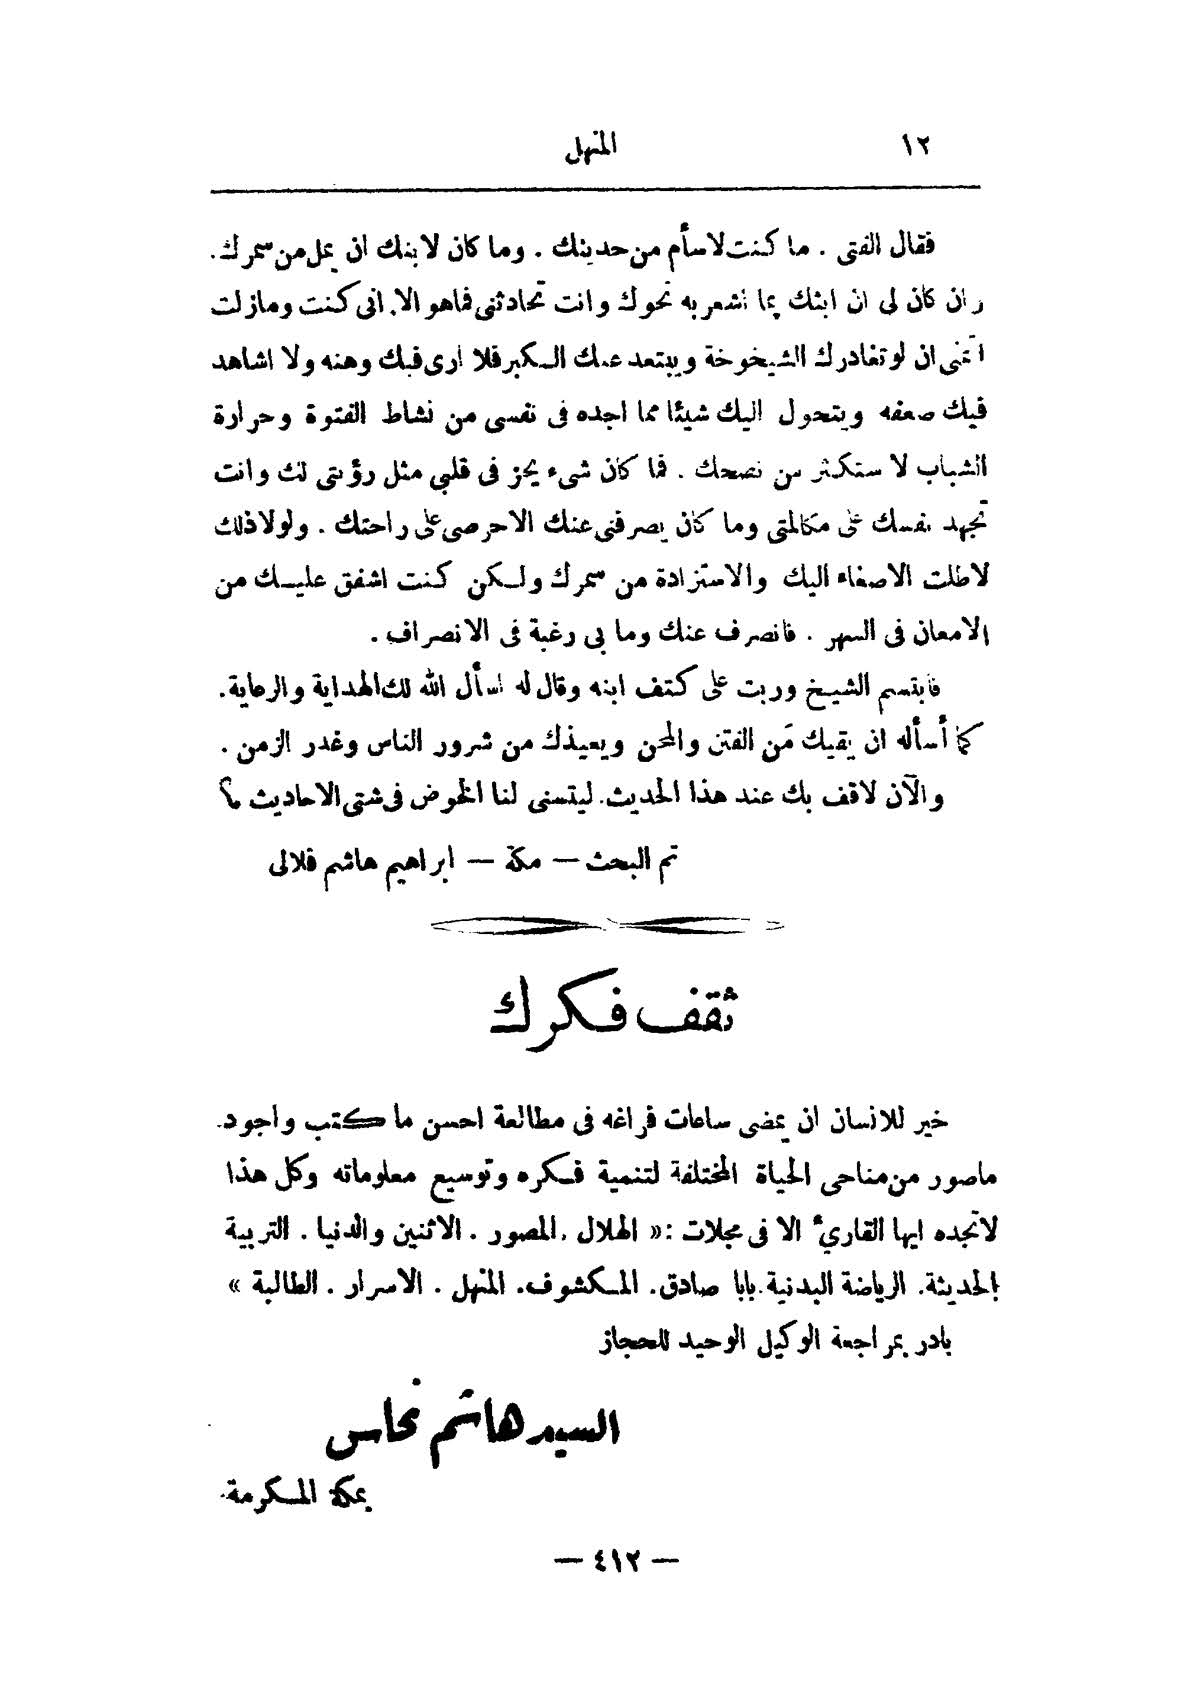 ١٢
المنهل
فقال الفتى . ما كنت لاسأم من حديثك . وما كان لابنك ان يمل من سمرك .
وان كان لى ان ابثك بما اشعر به نحوك وانت تحادثنى فماهو الا انى كنت ومازلت
اتمنى ان لو تغادرك الشيخوخة ويبتعد عنك الكبر فلا ارى فيك وهنه ولا اشاهد
فيك ضعفه ويتحول اليك شيئا مما اجده فى نفسى من نشاط الفتوة وحرارة
الشباب لا ستكثر من نصحك . فما كان شىء يحز فى قلبي مثل رؤيتى لك وانت
تجهد نفسك على مكالمتى وما كان يصرفنى عنك الاحرصى على راحتك . ولولا ذلك
لاطلت الاصغاء اليك والاستزادة من سمرك ولكن كنت اشفق عليك من
الامعان فى السهر . فانصرف عنك وما بى رغبة فى الانصراف .
فابتسم الشيخ وربت على كتف ابنه وقال له اسأل الله لك الهداية والرعاية .
كما أسأله ان يقيك من الفتن والمحن ويعيذك من شرور الناس وغدر الزمن .
والآن لاقف بك عند هذا الحديث. ليتسنى لنا الخوض فى شتى الاحاديث ؟
تم البحث — مكة — ابراهيم هاشم فلالى
ثقف فكرك
خير للانسان ان يمضى ساعات فراغه فى مطالعة احسن ما كتب واجود
ماصور من مناحى الحياة المختلفة لتنمية فكره وتوسيع معلوماته وكل هذا
لاتجده ايها القارئ الا فى مجلات :« الهلال . المصور . الاثنين والدنيا . التربية
الحديثة. الرياضة البدنية. بابا صادق. المكشوف. المنهل . الاسرار . الطالبة »
بادر بمراجعة الوكيل الوحيد للحجاز
السيد هاشم نحاس
بمكة المكرمة
— ٤١٢ —